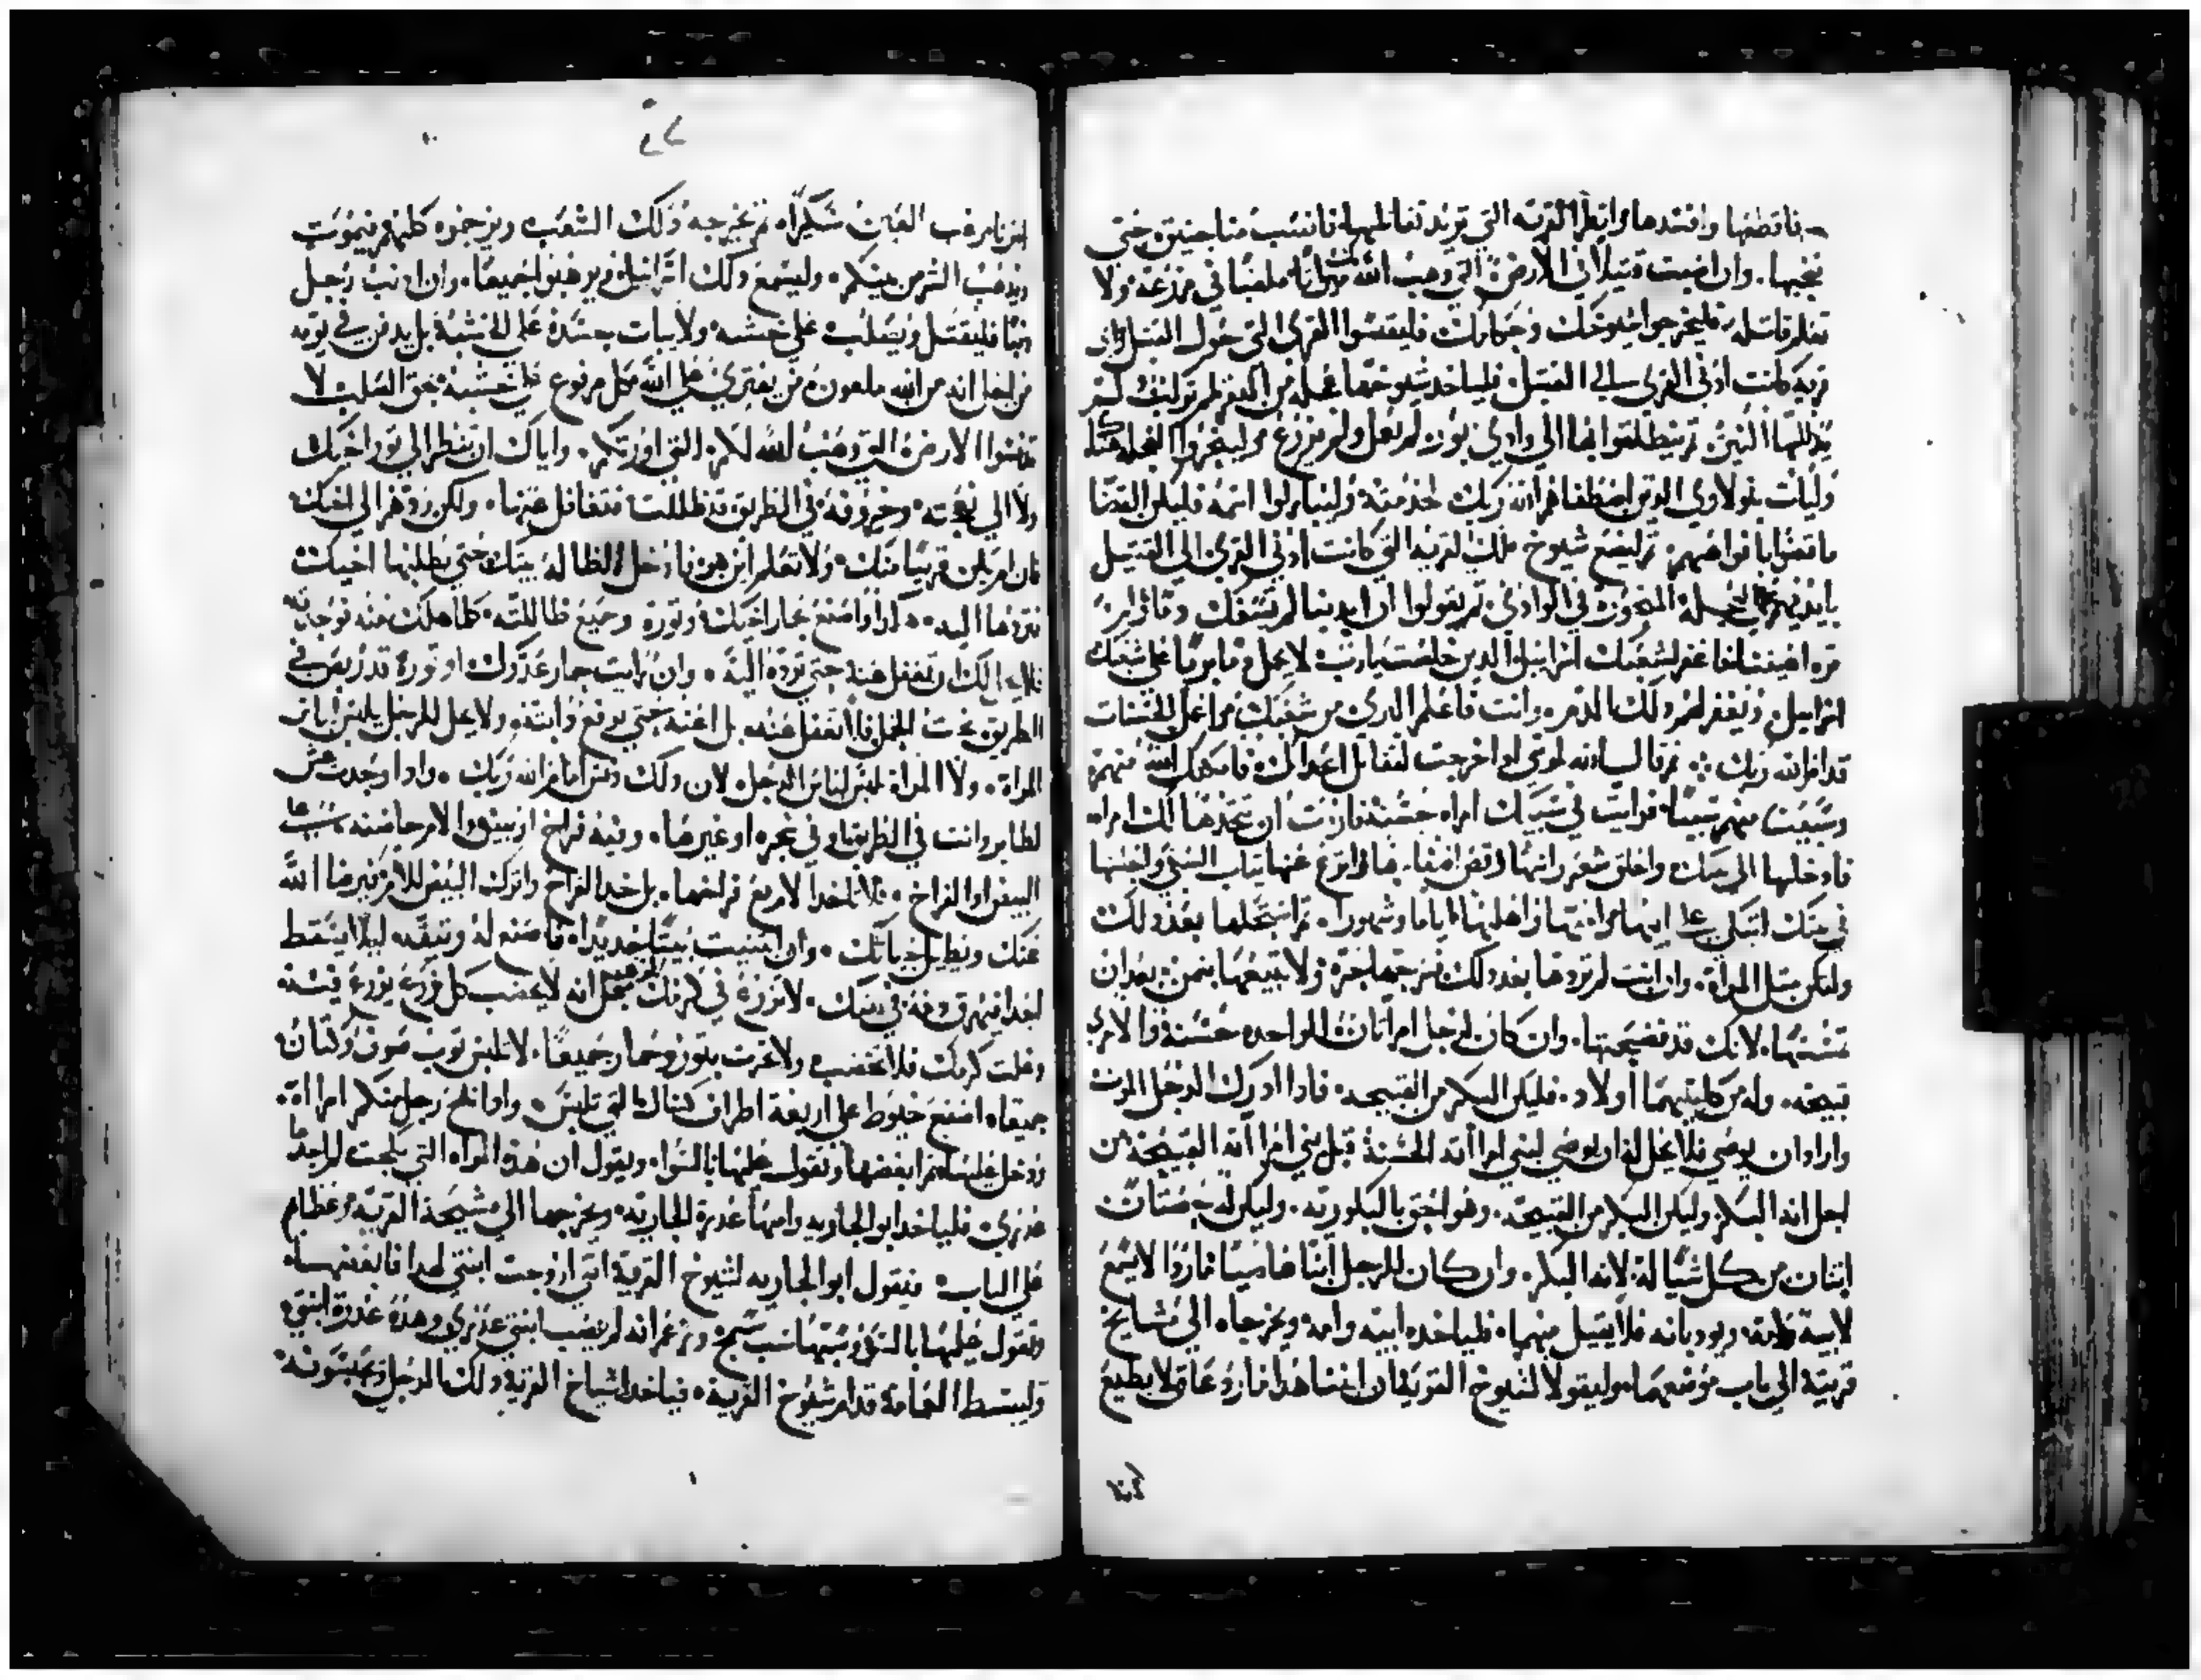 فاقطعها وافسدها واتعل القريه التي تريد تقاتلهم فانصب مناجنيق حتى
تخربها. وان اصبت قتيلا في الارض التي وهب الله لك ميراثا ملقيا في مزرعة ولا
تعلم قاتله فليخرجوا شيوخك وحكامك فليقيسوا القرى التي حول القتيل واي
قريه كانت ادنى القرى الى القتيل فلياخد شيوخها عجله من البقر لم تولف لم
يذللها النير ثم ينطلقوا بها الى وادي بور لم تعمل ولم يزرع ثم ليبخروا العجله هناك
وليات بنو لاوي الدين اصطفاهم الله ربك لخدمته وليباركوا اسمه فليكن القضا
ما قضوا بافواههم ثم ليضع شيوخ تلك القريه التي كانت ادنى القرى الى القتيل
بايديهم على العجله المنحورة في الوادي ثم يقولوا ان ايدينا لم تسفك دما ولم
تره اعيننا فاغفر لشعبك اسراييل الدين خلصت يارب لا يحمل دما بريا على شعبك
اسراييل ويغفر لهم دلك الدم وانت فاعلم البري من شعبك واعمل الحسنات
قدام الله ربك ثم قال الله لموسى اداخرجت لتقاتل اعداك فامكنك الله منهم
وسبيت منهم سبيا فرايت في سبيك امراه حسنة فاردت ان تتخدها لك امراه
فادخلها الى بيتك واحلق شعر راسها وقص اظفارها وانزع عنها تياب السبي واجلسها
في بيتك تبكي على ابيها وامها واهلها اياما وشهورا. ثم استحلها بعد دلك
ولتكن متل المراة. وان انت لم تردها بعد دلك فسرحها حرة ولا تبيعها بتمن بعد ان
تمسها. لانك قد فضحتها. وان كان لرجل امراتان الواحده حسنة والاخرى
قبيحة. وله من كلتيهما اولاد. فليكن البكر من القبيحه. فادا ادرك الرجل الموت
واراد ان يوصي فلا يحل له ان يوصي لبني امراته الحسنة قبل بني امراته القبيحة من
اجل انه البكر وليكن البكر من القبيحة. وهو احق بالبكوريه. وليكن له حصتان
اتنان من كل شيا له لانه البكر. وان كان للرجل ابنا عاصيا ماردا لا يسمع
لابيه وامه ويودبانه فلا يقبل منهما. فلياخده ابيه وامه ويخرجاه الى مشايخ
قريته الى باب موضعهما وليقولا لشيوخ القريه ان ابننا هدا مارد عاق لا يطيع
ويذهب الشر من بينكم. وليسمع دلك اسراييل ويرهبوا جميعا. وان ادنب رجل
دنبا فليقتل ويصلب على خشبه ولا يبات جسده على الخشبة بل يدفن في يومه
من اجل انه من الله ملعون من يفتري على الله وكل مرفوع على خشبة بحق الصلب لا
تنجسوا الارض التي وهب الله لكم التي اورتكم. واياك ان تنظر الى تور اخيك
ولا الى نعجته وخروفه في الطريق قد ظللت فتغافل عنها. ولكن ردها الى اخيك
فان لم يكن قريبا منك ولا تعلم اين هو فادخل الظاله بيتك حتى يطلبها اخيك
فتردها اليه. كدا واصنع بحمار اخيك وتوره وجميع ظاللته. كلما هلك منه فوجدته
فلا يحل لك ان تغفل عنه حتى ترده اليه. وان رايت حمار عدوك او توره قد ربض في
الطريق تحت الحمل فلا تغفل عنه بل اعنه حتى يرفع دابته. ولا يحل للرجل يلبس لباس
المراة. ولا المراة تلبس لباس الرجل لان دلك دنس امام الله ربك. وادا وجدت عش
لطاير وانت في الطريق او في شجره او غيرها. وفيه فراخ او بيض والام حاضنه على
البيض او الفراخ. فلا تاخد الام مع فراخها. بل خد الفراخ واترك البيض للام فيرضا الله
عنك ويطيل حياتك. وان ابتنيت بيتا جديدا فاصنع له وتيقه ليلا يسقط
احدا فيهرق دمه في بيتك. لا تزرع في كرمك من اجل انه لا يخصب كل زرع يزرع فيسد
وغلت كرمك فلا تخصب ولا تحرت بتور وحمار جميعا. لا تلبس توب صوف وكتان
جميعا. اصنع خيوط على اربعة اطراف كساك التي تلبس. وادا نكح رجل منكم امراة.
ودخل عليها ثم ابغضها وتقول عليها بالسوا. ويقول ان هده المراه التي نكحت لم اجدها
عدري. فلياخد ابو الجاريه وامها عدرة الجارية ويخرجها الى مشيخة القرية وعظام
على الباب فيقول ابو الجاريه لشيوخ القرية انني ازوجت ابنتي لهدا فابغضها
وتقول عليها بالسو وسبها سب سمج وزعم انه لم يصيب ابنتي عدري وهدة عدرة ابنتي
وليبسط العمامة قدام شيوخ القرية. فياخد اشياخ القرية دلك الرجل وتحبسونه